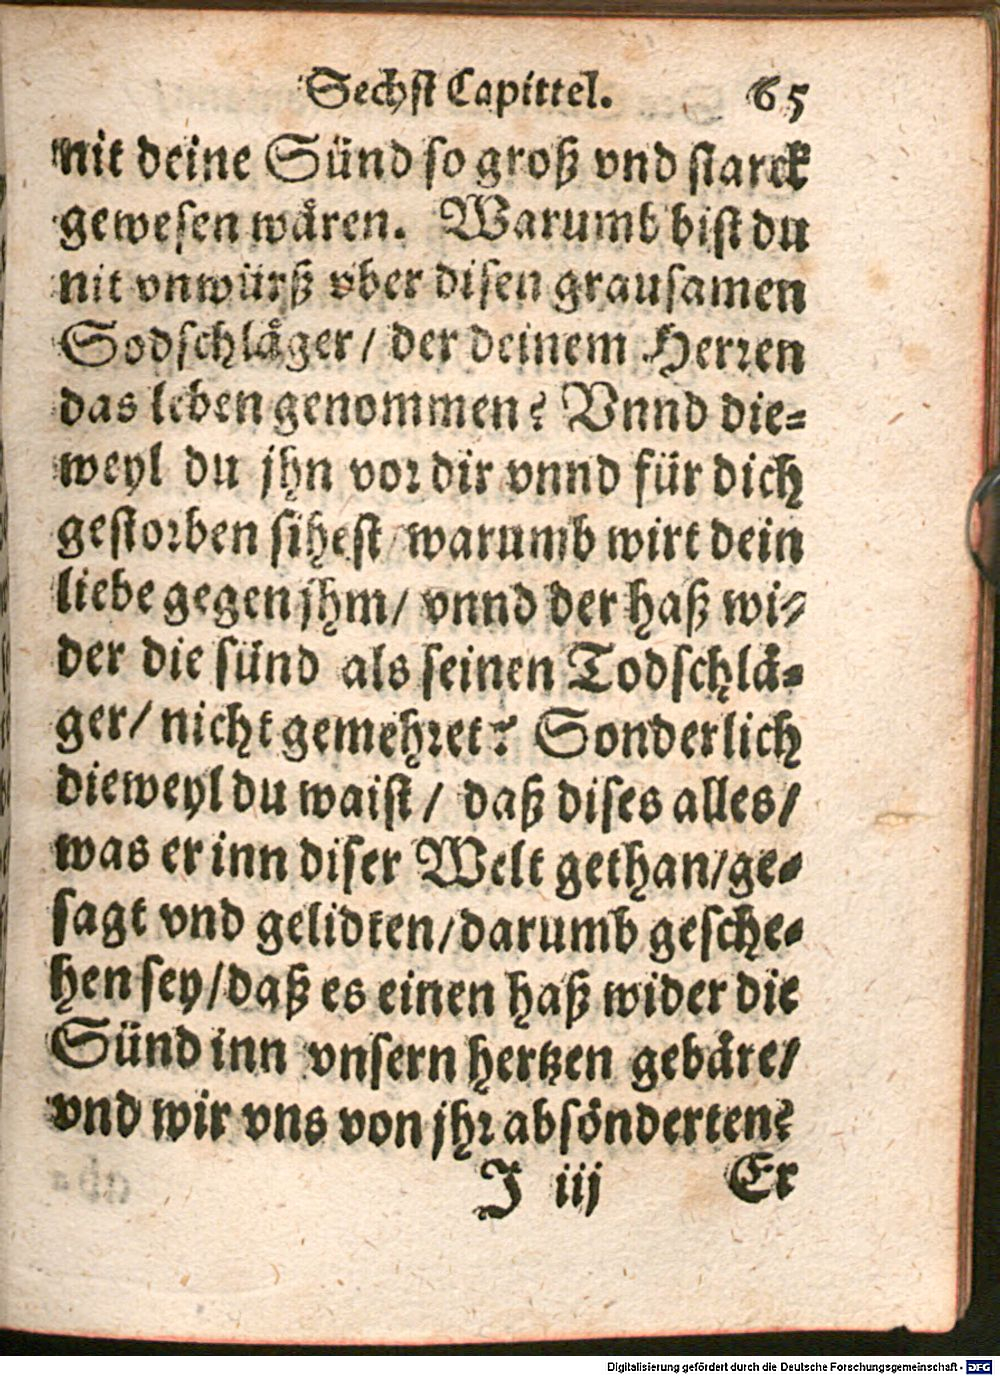 Sechst Capittel. 65
nit deine Sünd so groß vnd starck
gewesen wåren. Warumb bist du
nit vnwürß vber disen grausamen
Sodschlåger / der deinem Herren
das leben genommen? Vnnd die=
weyl du jhn vor dir vnnd für dich
gestorben sihest / warumb wirt dein
liebe gegen jhm / vnnd der haß wi=
der die sünd als seinen Todschlå=
ger / nicht gemehret? Sonderlich
dieweyl du waist / daß dises alles /
was er inn diser Welt gethan / ge=
sagt vnd gelidten / darumb gesche=
hen sey / daß es einen haß wider die
Sünd inn vnsern hertzen gebåre /
vnd wir vns von jhr absönderten?
J iij Er
Digitalisierung gefördert durch die Deutsche Forschungsgemeinschaft - DFG